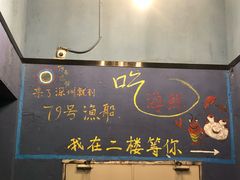 来了深圳就到
79号渔船
吃海鲜
我在二楼等你